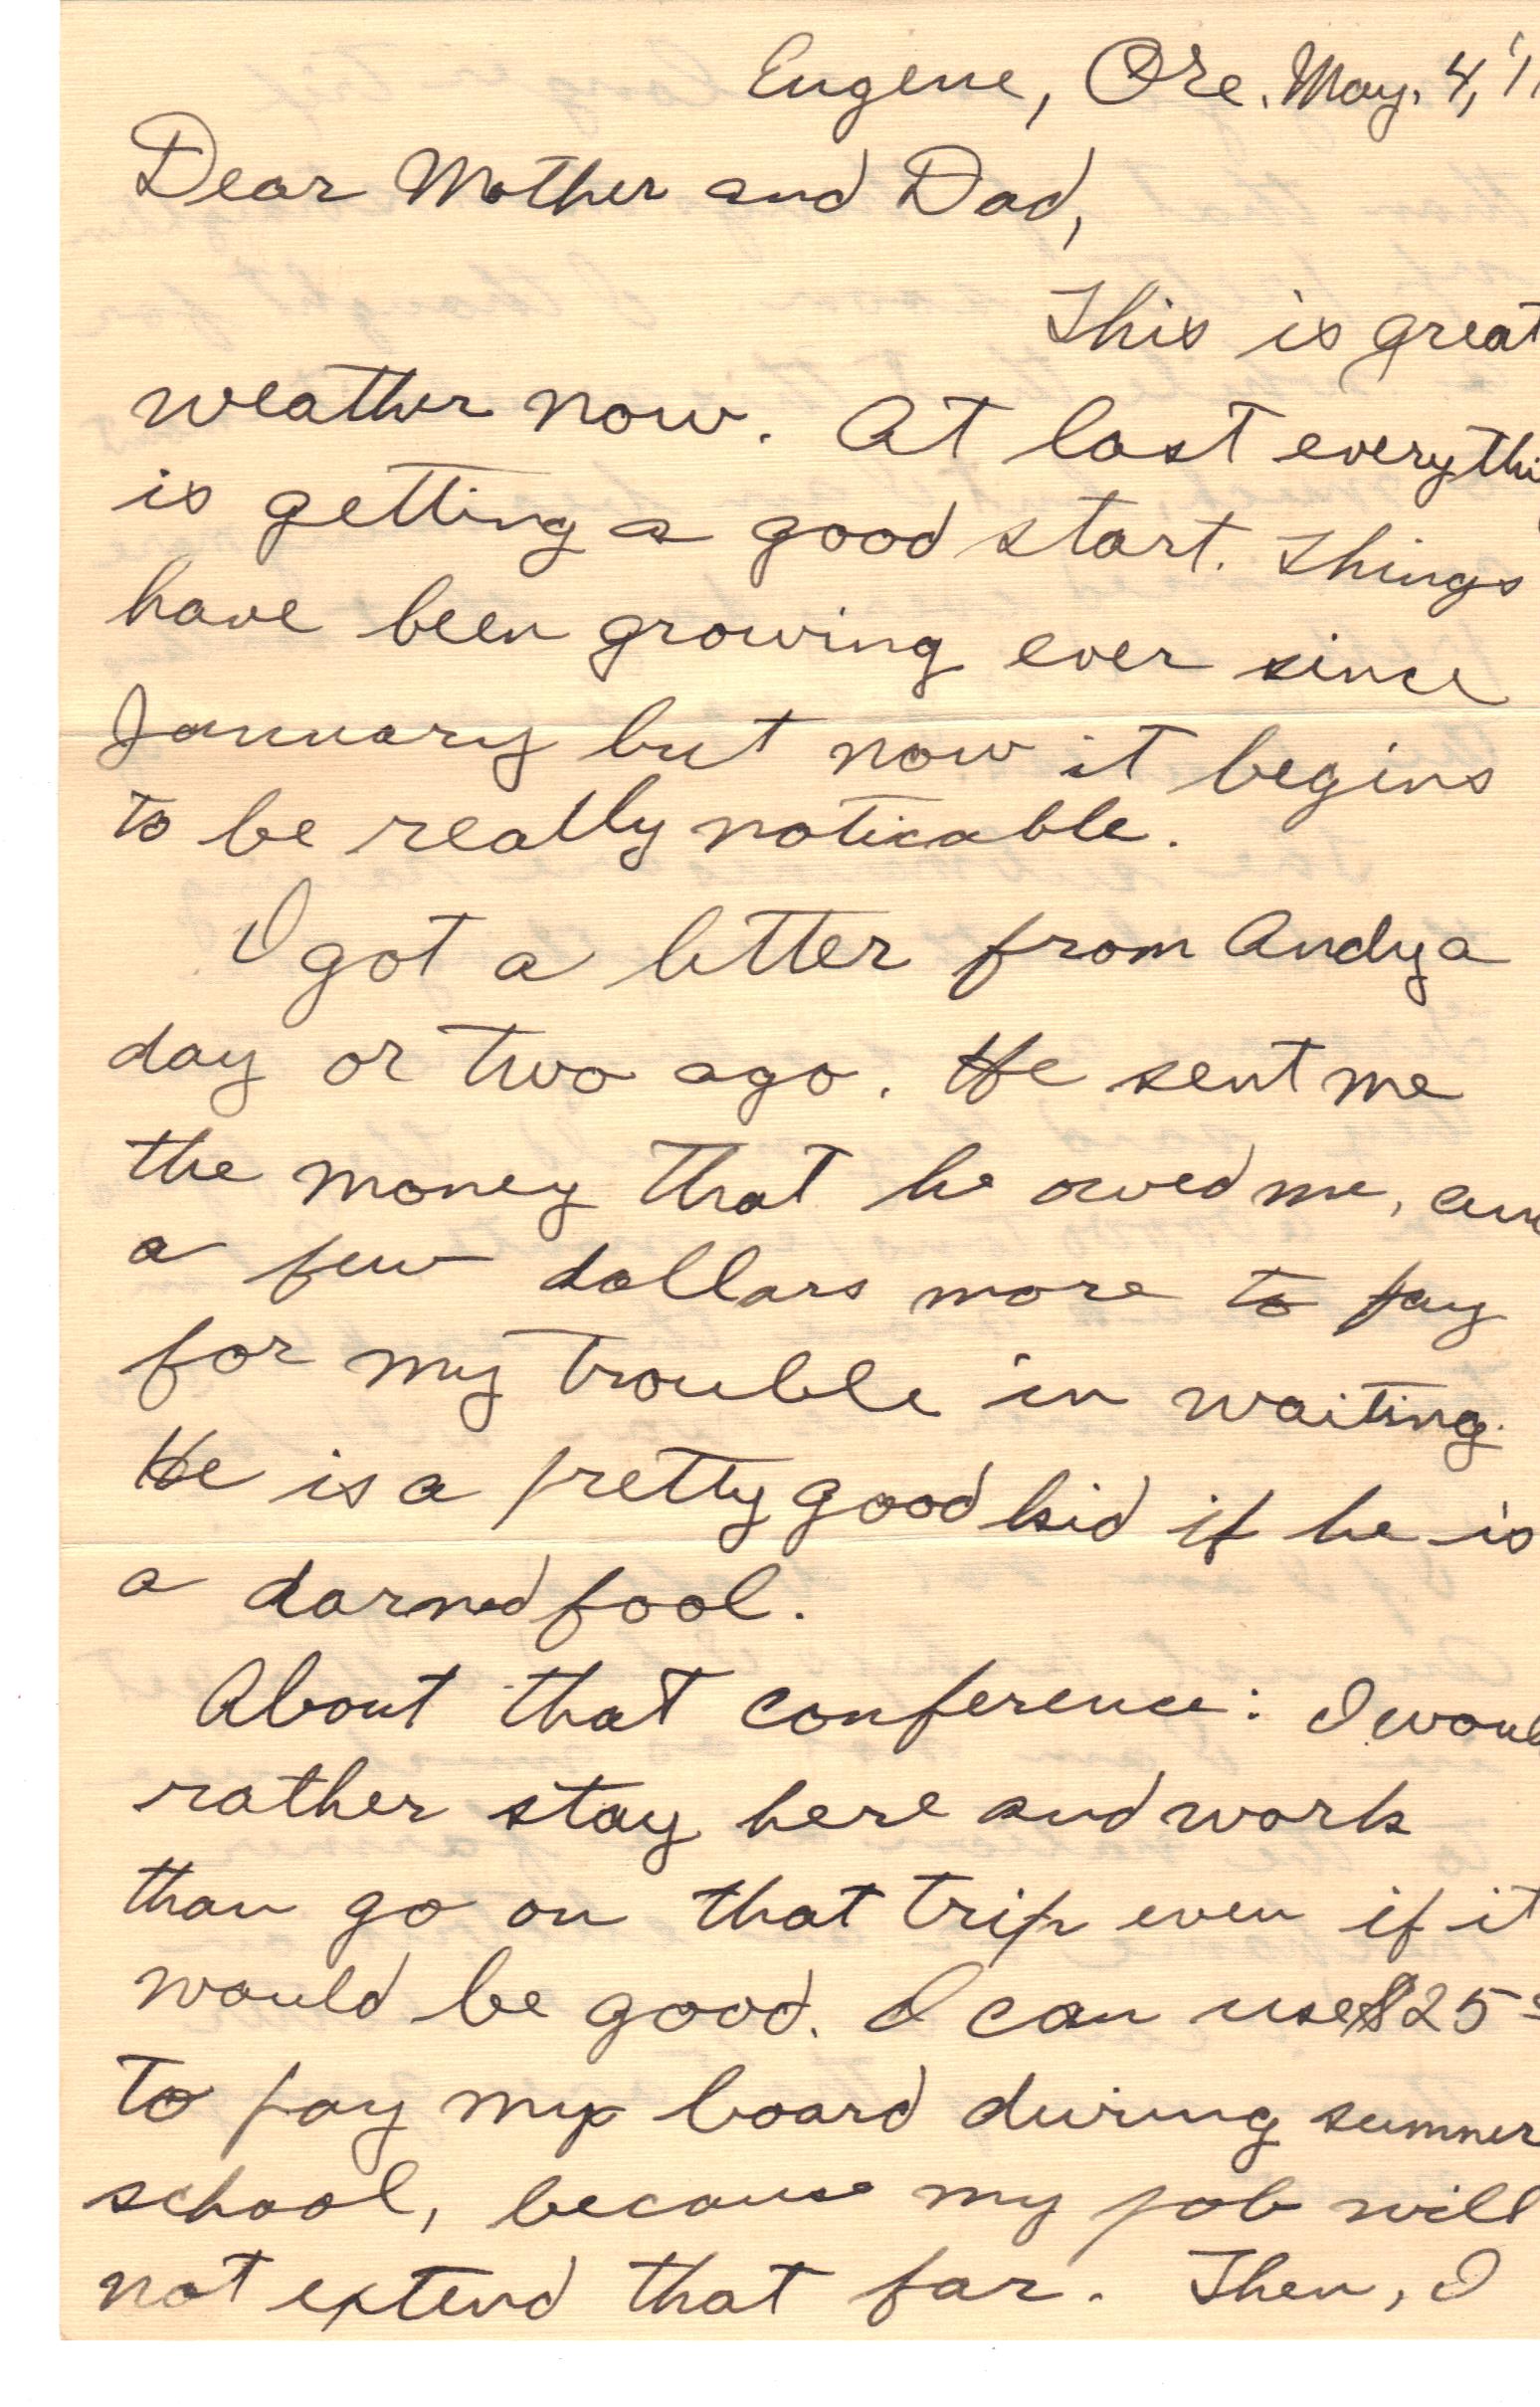 Eugene, Ore. May. 4, '1
Dear Mother and Dad,
This is great
weather now. At last everythi
is getting a good start. Things
have been growing ever since
January but now it begins
to be really noticable.
I got a letter from Andy a
day or two ago. He sent me
the money that he owed me, an
a few dollars more to pay
for my trouble in waiting.
He is a pretty good kid if he is
a darned fool.
About that conference: I woul
rather stay here and work
than go on that trip even if it
would be good. I can use $25
to pay my board during summer
school, because my job will
not extend that far. Then, I